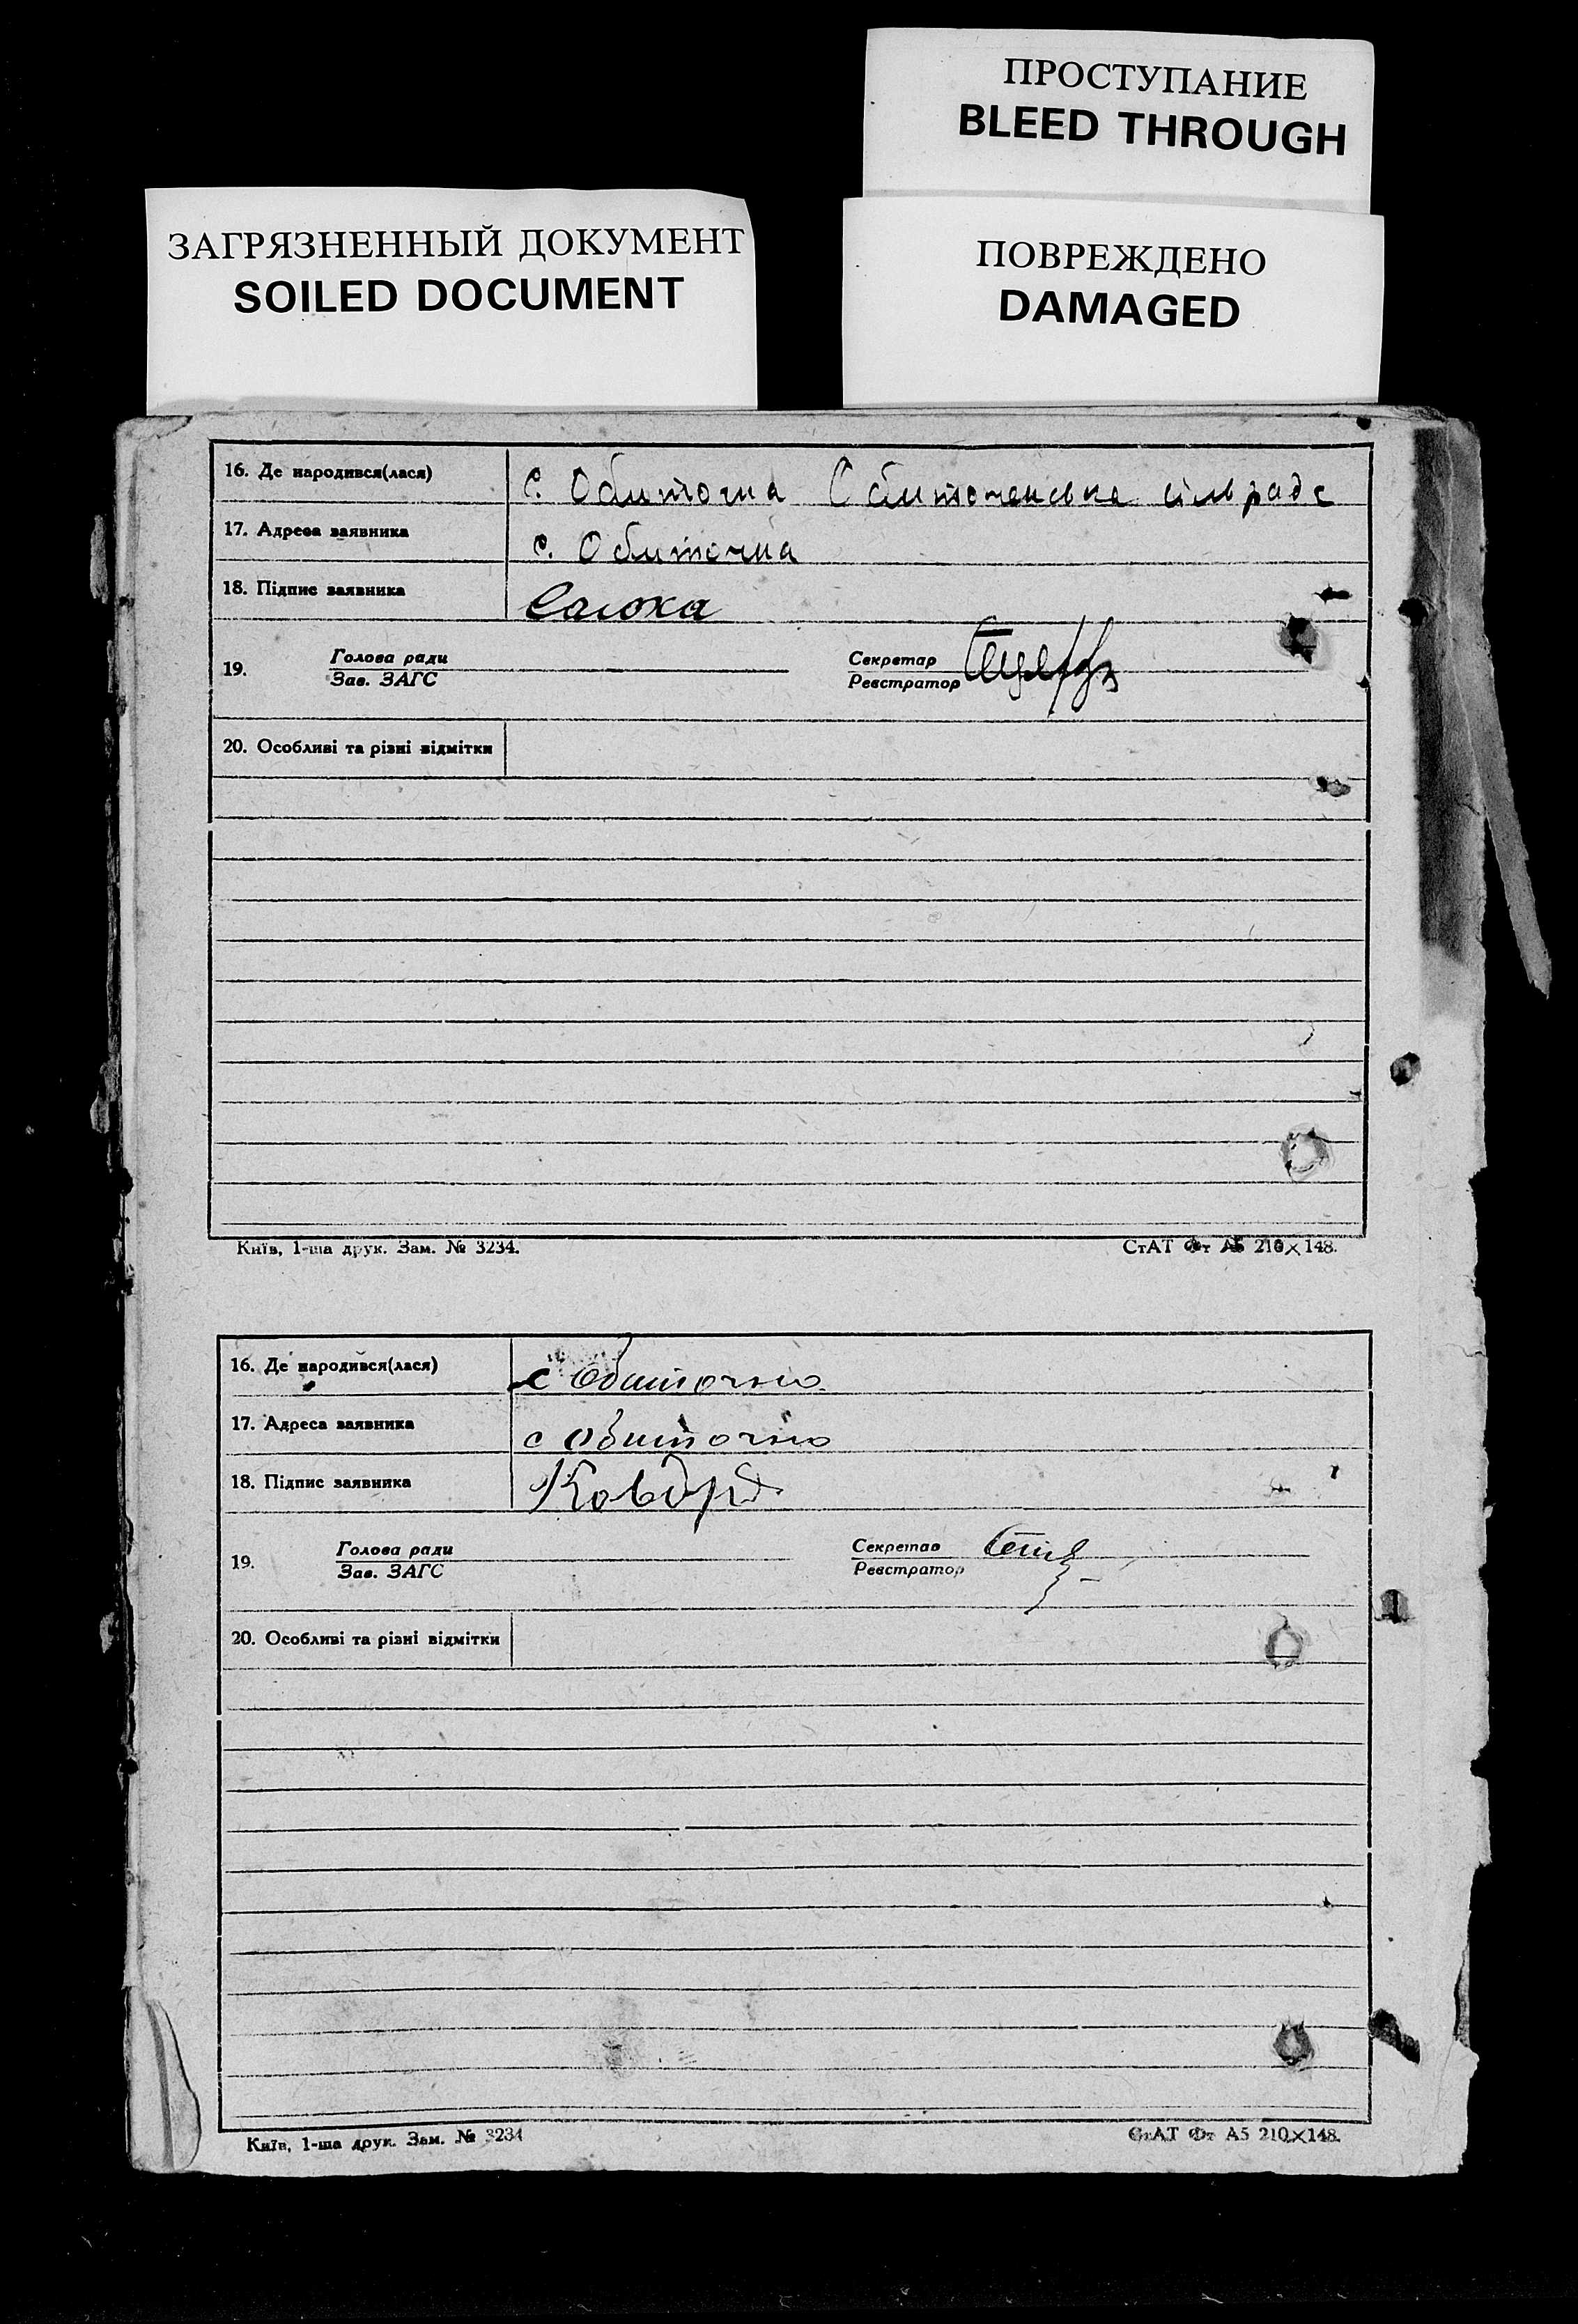 ПРОСТУПАНИЕ
BLEED THROUGH
ЗАГРЯЗНЕННЫЙ ДОКУМЕНТ
SOILED DOCUMENT
ПОВРЕЖДЕНО
DAMAGED
16. Де народився(лася) с. Обиточна Обиточенська сільрада
17. Адреса заявника с. Обиточна
18. Підпис заявника
19. Голова ради Секретар
Зав. ЗАГС Реєстратор
20. Особливі та різні відмітки
Київ, 1-ша друк. Зам. № 3234. СтАТ Фт А5 210×148.
16. Де народився(лася) с Обиточна
17. Адреса заявника с Обиточна
18. Підпис заявника
19. Голова ради Секретар
Зав. ЗАГС Реєстратор
20. Особливі та різні відмітки
Київ, 1-ша друк. Зам. № 3234 СтАТ Фт А5 210×148.